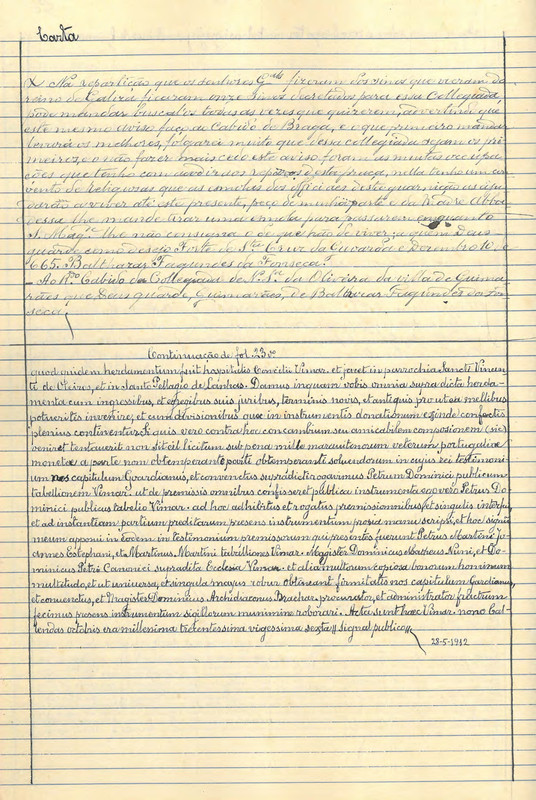 Carta
X Na repartição que os senhores G.des fizeram dos sinos que vieram do
reino de Galiza ficaram onze sinos decretados para essa Collegiada,
pode mandar buscal-os todas as vezes que quizerem, advertindo que
este mesmo aviso faço ao Cabido de Braga, e o que primeiro mandar
levará os melhores, folgarei muito que dessa collegiada sejam os pri-
meiros, e o não fazer mais cedo este aviso foram as muitas occupa-
ções que tenho com acodir aos reparos desta praça, nella tenho um con-
vento de religiosas que as esmolas dos officiaes desta guarnição as aju-
darão a viver até este presente, peço de minha parte e da Madre Abba-
dessa lhe mande tirar uma esmola para passarem emquanto
S. Mag.de lhe não consigna o de que hão de viver; a quem Deus
guarde como desejo Forte de S.ta Cruz da Guarda e Dezembro 10, de
665. Balthazar Fagundes da Fonseca.
— Ao R.do Cabido da Collegiada de N. Sr.a da Oliveira da villa de Guima-
rães que Deus guarde, Guimarães, de Balthazar Fagundes da Fon-
seca.
Continuação de fol. 23 vº
quod quidem herdamentum fuit hospitalis Concilii Vimar. et jacet in parrochia Sancti Vincen-
tii de Oleiros, et in Sancto Pellagio de Lanhas. Damus inquam vobis omnia supradicta herda-
menta cum ingressibus, et egressibus suis juribus, terminis novis, et antiquis prout ea mellibus
potueritis invenire, et cum divisionibus quae in instrumentis donationum exinde confectis
plenius continentur; si quis vero contra hoc concambium seu amicabilem composionem (sic)
venire tentaverit non sit ei licitum sub pena mille marautinorum veterum portugaliae
monetae a parte non obtemperante parti obtemperanti solvendorum in cujus rei testimoni-
um nos capitulum Guardianus, et conventus supradicti rogavimus Petrum Dominici publicum
tabellionem Vimar. ut de premissis omnibus confisseret publica instrumenta ego vero Petrus Do-
minici publicus tabelio Vimar. ad hoc adhibitus et rogatus premissis omnibus, et singulis interfui,
et ad instantiam partium predictarum presens instrumentum propria manu scripsi, et hoc signum
meum apponi in eodem in testimonium premissorum qui presentes fuerunt Petrus Martini Jo-
annes Estephani, et Martinus Martini tabelliones Vimar. Magister Dominicus Matheus Nuni, et Do-
minicus Petri Canonici supradictae Ecclesiae Vimar. et alia multorum copiosa bonorum hominum
multitudo, et ut universa, et singula majus robur obtineant firmitatis nos capitulum Gardianus,
et conventus, et Magister Dominicus Archidiaconus Brachar. procurator, et administrator fratrum
fecimus presens instrumentum sigillorum munimine roborari. Acta sunt haec Vimar. nono Cal-
lendas octobris era millessima trecentessima vigessima sexta // signal publico //
28-5-1912